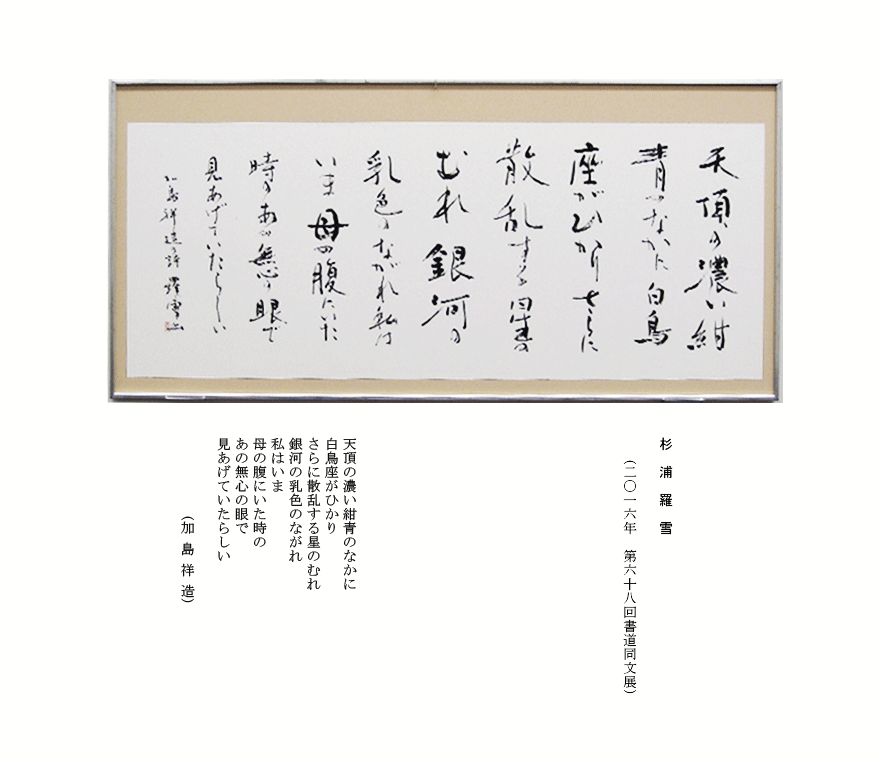 天頂の濃い紺
青のなかに白鳥
座がひかりさらに
散乱する星の
むれ銀河の
乳色のながれ私は
いま母の腹にいた
時のあの無心の眼で
見あげていたらしい
加島祥造の詩 羅雪書
杉浦羅雪
(二〇一六年 第六十八回書道同文展)
天頂の濃い紺青のなかに
白鳥座がひかり
さらに散乱する星のむれ
銀河の乳色のながれ
私はいま
母の腹にいた時の
あの無心の眼で
見あげていたらしい
(加島祥造)